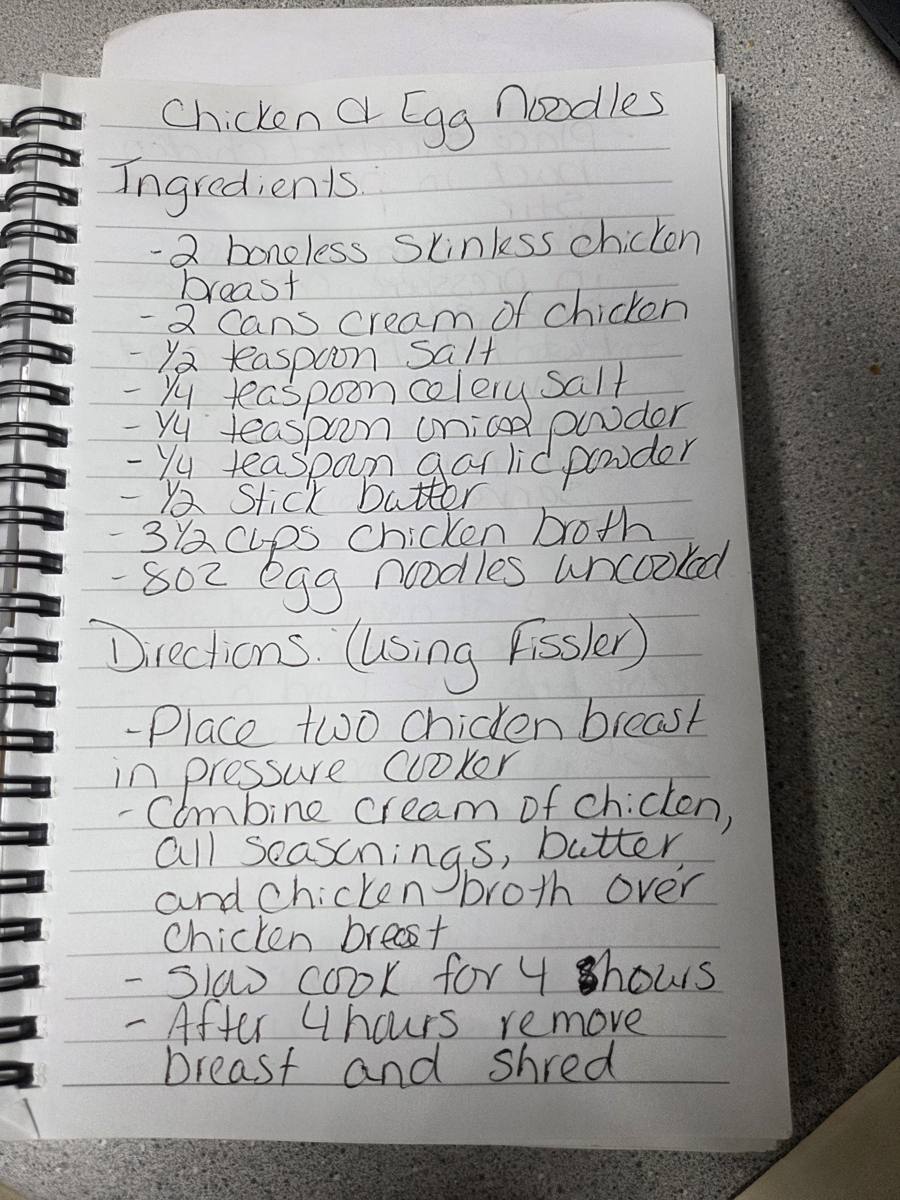 Chicken & Egg Noodles
Ingredients:
- 2 boneless skinless chicken
breast
- 2 cans cream of chicken
- 1/2 teaspoon salt
- 1/4 teaspoon celery salt
- 1/4 teaspoon onion powder
- 1/4 teaspoon garlic powder
- 1/2 stick butter
- 3 1/2 cups chicken broth
- 8oz egg noodles uncooked
Directions: (using Fissler)
- Place two chicken breast
in pressure cooker
- Combine cream of chicken,
all seasonings, butter,
and chicken broth over
chicken breast
- Slow cook for 4 hours
- After 4 hours remove
breast and shred